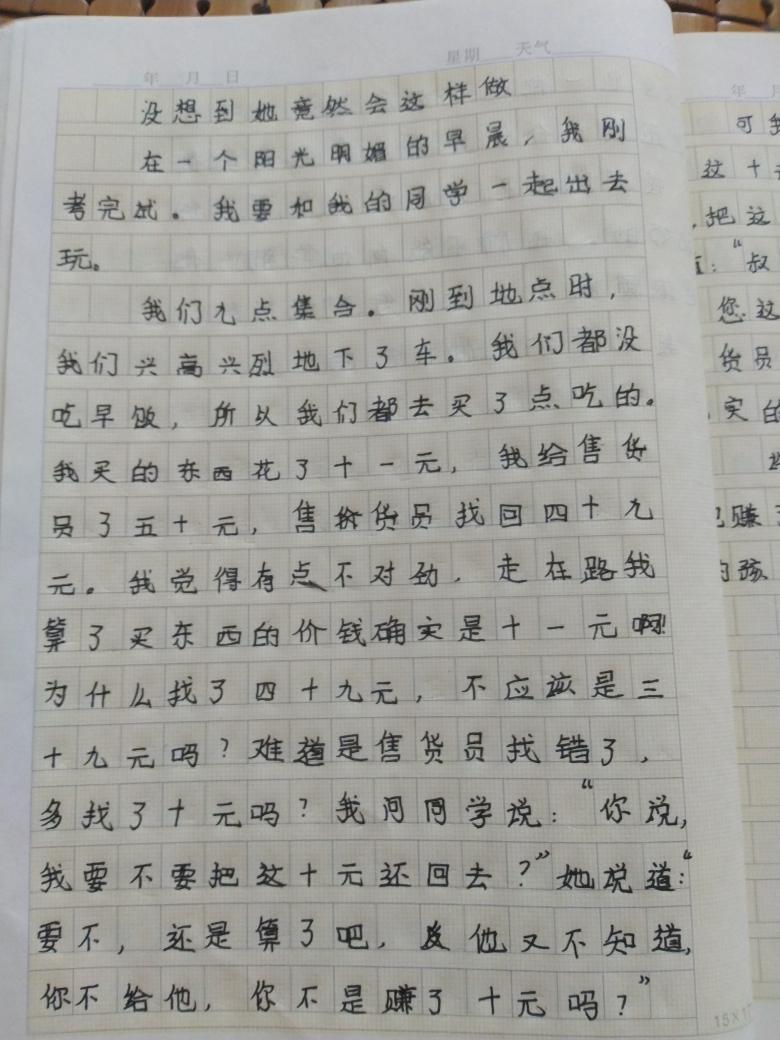 星期 天气
年 月 日
没想到她竟然会这样做
在一个阳光明媚的早晨，我刚
考完试。我要和我的同学一起出去
玩。
我们九点集合。刚到地点时，
我们兴高兴烈地下了车。我们都没
吃早饭，所以我们都去买了点吃的。
我买的东西花了十一元，我给售货
员了五十元，售货员找回四十九
元。我觉得有点不对劲，走在路我
算了买东西的价钱确实是十一元啊！
为什么找了四十九元，不应该是三
十九元吗？难道是售货员找错了，
多找了十元吗？我问同学说：“你说，
我要不要把这十元还回去？”她说道：“
要不，还是算了吧，反他又不知道，
你不给他，你不是赚了十元吗？”
年 月
可我
过十
，把这
：“叔
您这
货员
实的
赚了
的孩